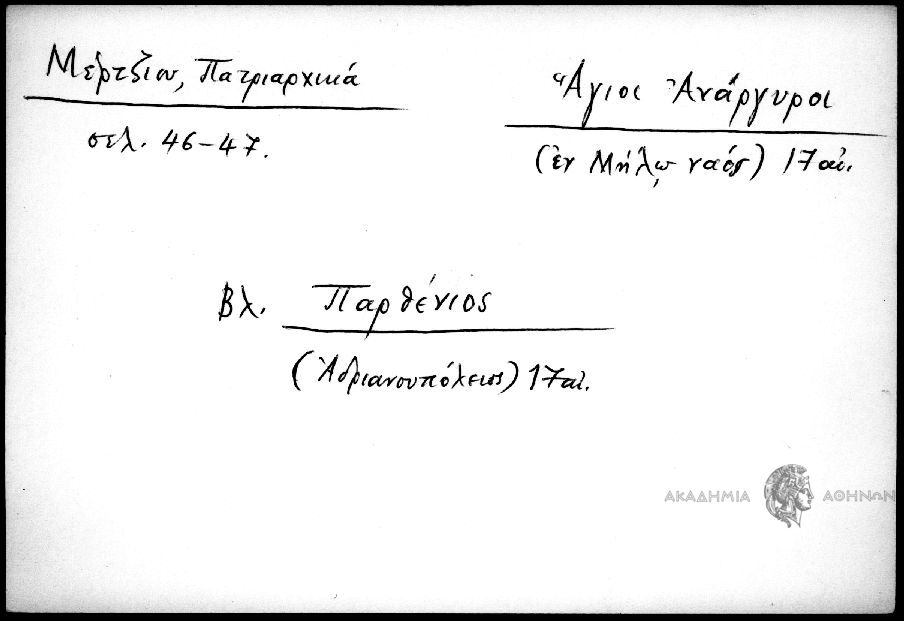 Μέρτζιου, Πατριαρχικά
σελ. 46-47.
Ἅγιοι Ἀνάργυροι
(ἐν Μήλῳ ναός) 17 αἰ.
Βλ. Παρθένιος
(Ἀδριανουπόλεως) 17 αἰ.
ΑΚΑΔΗΜΙΑ ΑΘΗΝΩΝ